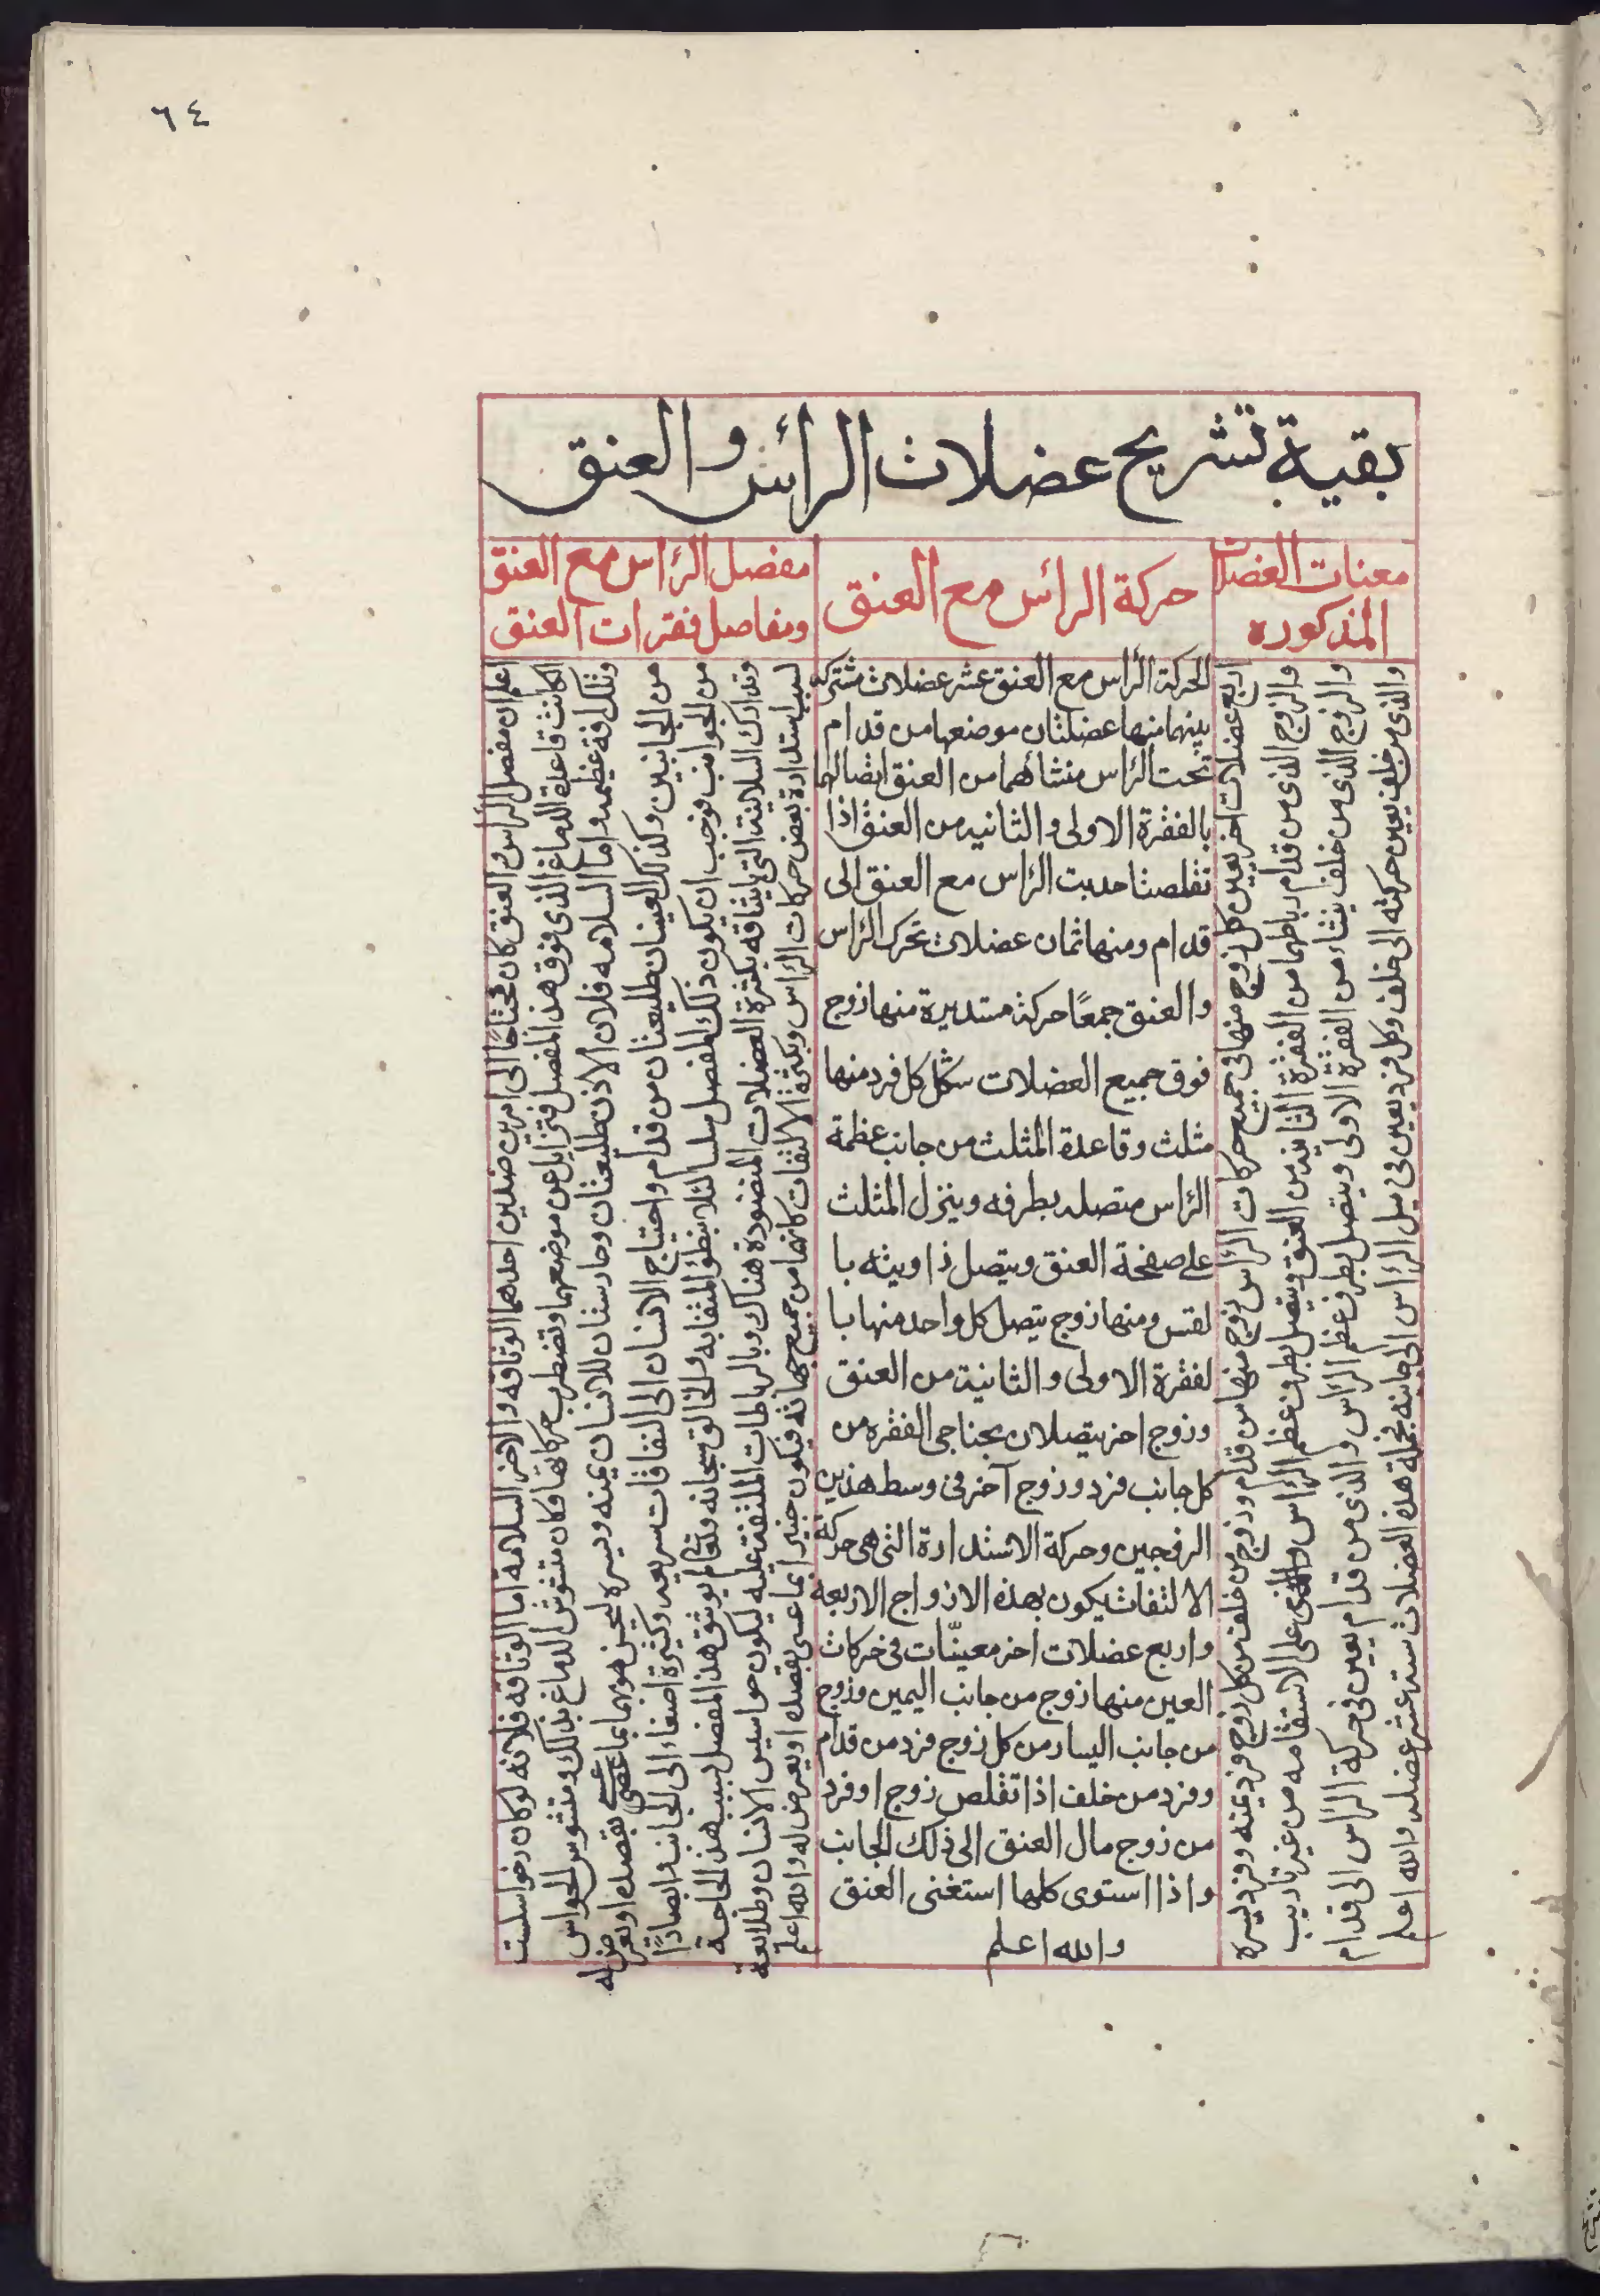 ٦٤
بقية تشريح عضلات الرأس والعنق
معنات العضلات
المذكوره
حركة الرأس مع العنق
مفصل الرأس مع العنق
ومفاصل فقرات العنق
اربع عضلات اخر يعين كل زوج منها فى جميع حركات الرأس زوج منها من قدام وزوج من خلف من كل زوج فرد يمنه وفرد يسره
والزوج الذى من قدام رباطهما من الفقرة الثانيه من العنق ويتصل بطرف عظم الرأس والذى على الاستقامه من غير تاريب
والزوج الذى من خلف ينشاء من الفقرة الاولى ويتصل بطرف عظم الرأس والذى من قدام يعين فى حركة الراس الى قدام
والذى من خلف يعين حركته الى خلف وكل فرد يعين فى ميل الرأس الى جانبه فجملة هذه العضلات سته عشر عضله والله اعلم
الحركة الرأس مع العنق عشر عضلات مشتركه
بينهما منها عضلتان موضعها من قدام
تحت الرأس منشائهما من العنق اتصالهما
بالفقرة الاولى والثانيه من العنق اذا
تقلصتا جدبت الرأس مع العنق الى
قدام ومنها ثمان عضلات تحرك الرأس
والعنق جمعًا حركة مستديرة منها زوج
فوق جميع العضلات شكل كل فرد منها
مثلث وقاعدة المثلث من جانب عظمة
الرأس متصله بطرفه وينزل المثلث
على صفحة العنق ويتصل زاويته با
لقس ومنها زوج يتصل كل واحد منها با
لفقرة الاولى والثانية من العنق
وزوج اخر يتصلان بجناحى الفقره من
كل جانب فرد وزوج آخر فى وسط هذين
الزوجين وحركة الاستدارة التى هى حركة
الالتفات يكون بهذه الازواج الاربعه
واربع عضلات اخر معينّات فى حركات
العين منها زوج من جانب اليمين وزوج
من جانب اليسار من كل زوج فرد من قدام
وفرد من خلف اذا تقلص زوج او فرد
من زوج مال العنق الى ذلك الجانب
واذا استوى كلها استغنى العنق
والله اعلم
اعلم ان مفصل الراس والعنق كان محتاجًا الى امرين ضدين احدهما الوثاقه والاخر السلامه اما الوثاقه فلانه لو كان رخوا سلست
لكانت قاعدة الدماغ الذى فوق هذا المفصل فتزايل عن موضعها وتضطرب حركاتها وكان متشوش الدماغ بذلك ومتشوس الحواس
وتلك افة عظيمه واما السلامه فلان الاذن طليعتان وحارستان للانسان يمنه ويسره ليحن هو بهما بما عسى بقصده او يعرض له
من الجانبين وكذلك العينان طليعتان من قدام واحتياج الانسان الى التفاقات سريعه وكثيرة اصغاء الى الجانب وابصادًا
من الجوانب فوجب ان يكون ذلك المفصل سلسا لئلا يبطؤ التفاته والخالق سبحانه وتعالى لم يوثق هذا المفصل بسبب هذ الحاجة
وتدارك السلاسة التى بايثاقه بكثرة العضلات المنضودة هناك وبالرباطات الملتفة عليه ليكون حواسيس الانسان وطلايعة
لسبب استدارة بعض حركات الرأس وبكثرة الالتفات كانهما من جميع جهاته فيكون خبيرا بما عسى بقصده او يعرض له والله اعلم